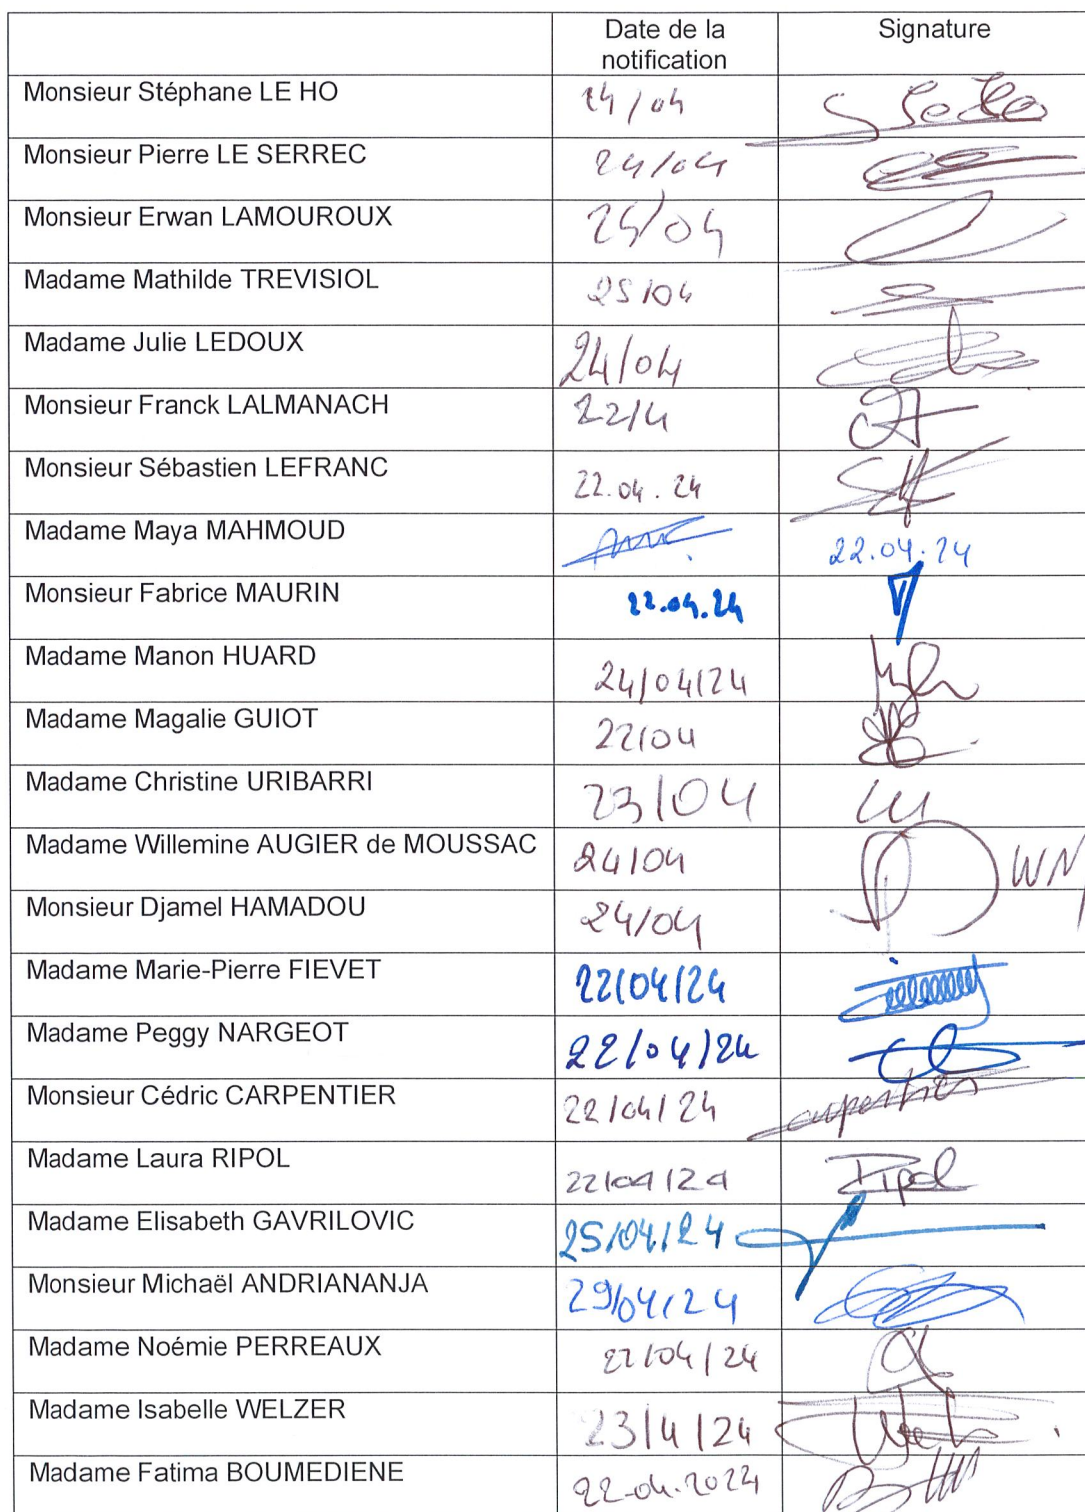 Date de la notification Signature
Monsieur Stéphane LE HO 24/04
Monsieur Pierre LE SERREC 24/04
Monsieur Erwan LAMOUROUX 25/04
Madame Mathilde TREVISIOL 25/04
Madame Julie LEDOUX 24/04
Monsieur Franck LALMANACH 22/4
Monsieur Sébastien LEFRANC 22.04.24
Madame Maya MAHMOUD 22.04.24
Monsieur Fabrice MAURIN 22.04.24
Madame Manon HUARD 24/04/24
Madame Magalie GUIOT 22/04
Madame Christine URIBARRI 23/04
Madame Willemine AUGIER de MOUSSAC 24/04
Monsieur Djamel HAMADOU 24/04
Madame Marie-Pierre FIEVET 22/04/24
Madame Peggy NARGEOT 22/04/24
Monsieur Cédric CARPENTIER 22/04/24 carpentier
Madame Laura RIPOL 22/04/24 Ripol
Madame Elisabeth GAVRILOVIC 25/04/24
Monsieur Michaël ANDRIANANJA 29/04/24
Madame Noémie PERREAUX 22/04/24
Madame Isabelle WELZER 23/4/24
Madame Fatima BOUMEDIENE 22-04.2024